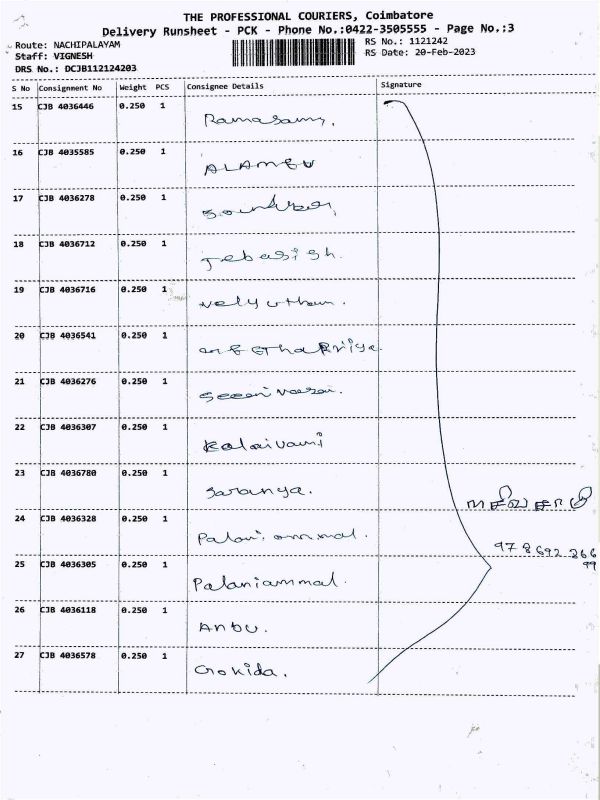 THE PROFESSIONAL COURIERS, Coimbatore
Delivery Runsheet - PCK - Phone No.:0422-3505555 - Page No.:3
Route: NACHIPALAYAM RS No.: 1121242
Staff: VIGNESH RS Date: 20-Feb-2023
DRS No.: DCJB112124203
S No Consignment No Weight PCS Consignee Details Signature
15 CJB 4036446 0.250 1 Ramasamy.
16 CJB 4035585 0.250 1 ALAMGU
17 CJB 4036278 0.250 1
18 CJB 4036712 0.250 1 Jebasish.
19 CJB 4036716 0.250 1
20 CJB 4036541 0.250 1
21 CJB 4036276 0.250 1
22 CJB 4036307 0.250 1 Kalaivani
23 CJB 4036780 0.250 1 Saranya.
24 CJB 4036328 0.250 1 Palaniammal.
25 CJB 4036305 0.250 1 Palaniammal.
26 CJB 4036118 0.250 1 Anbu.
27 CJB 4036578 0.250 1
97 8692 266
99